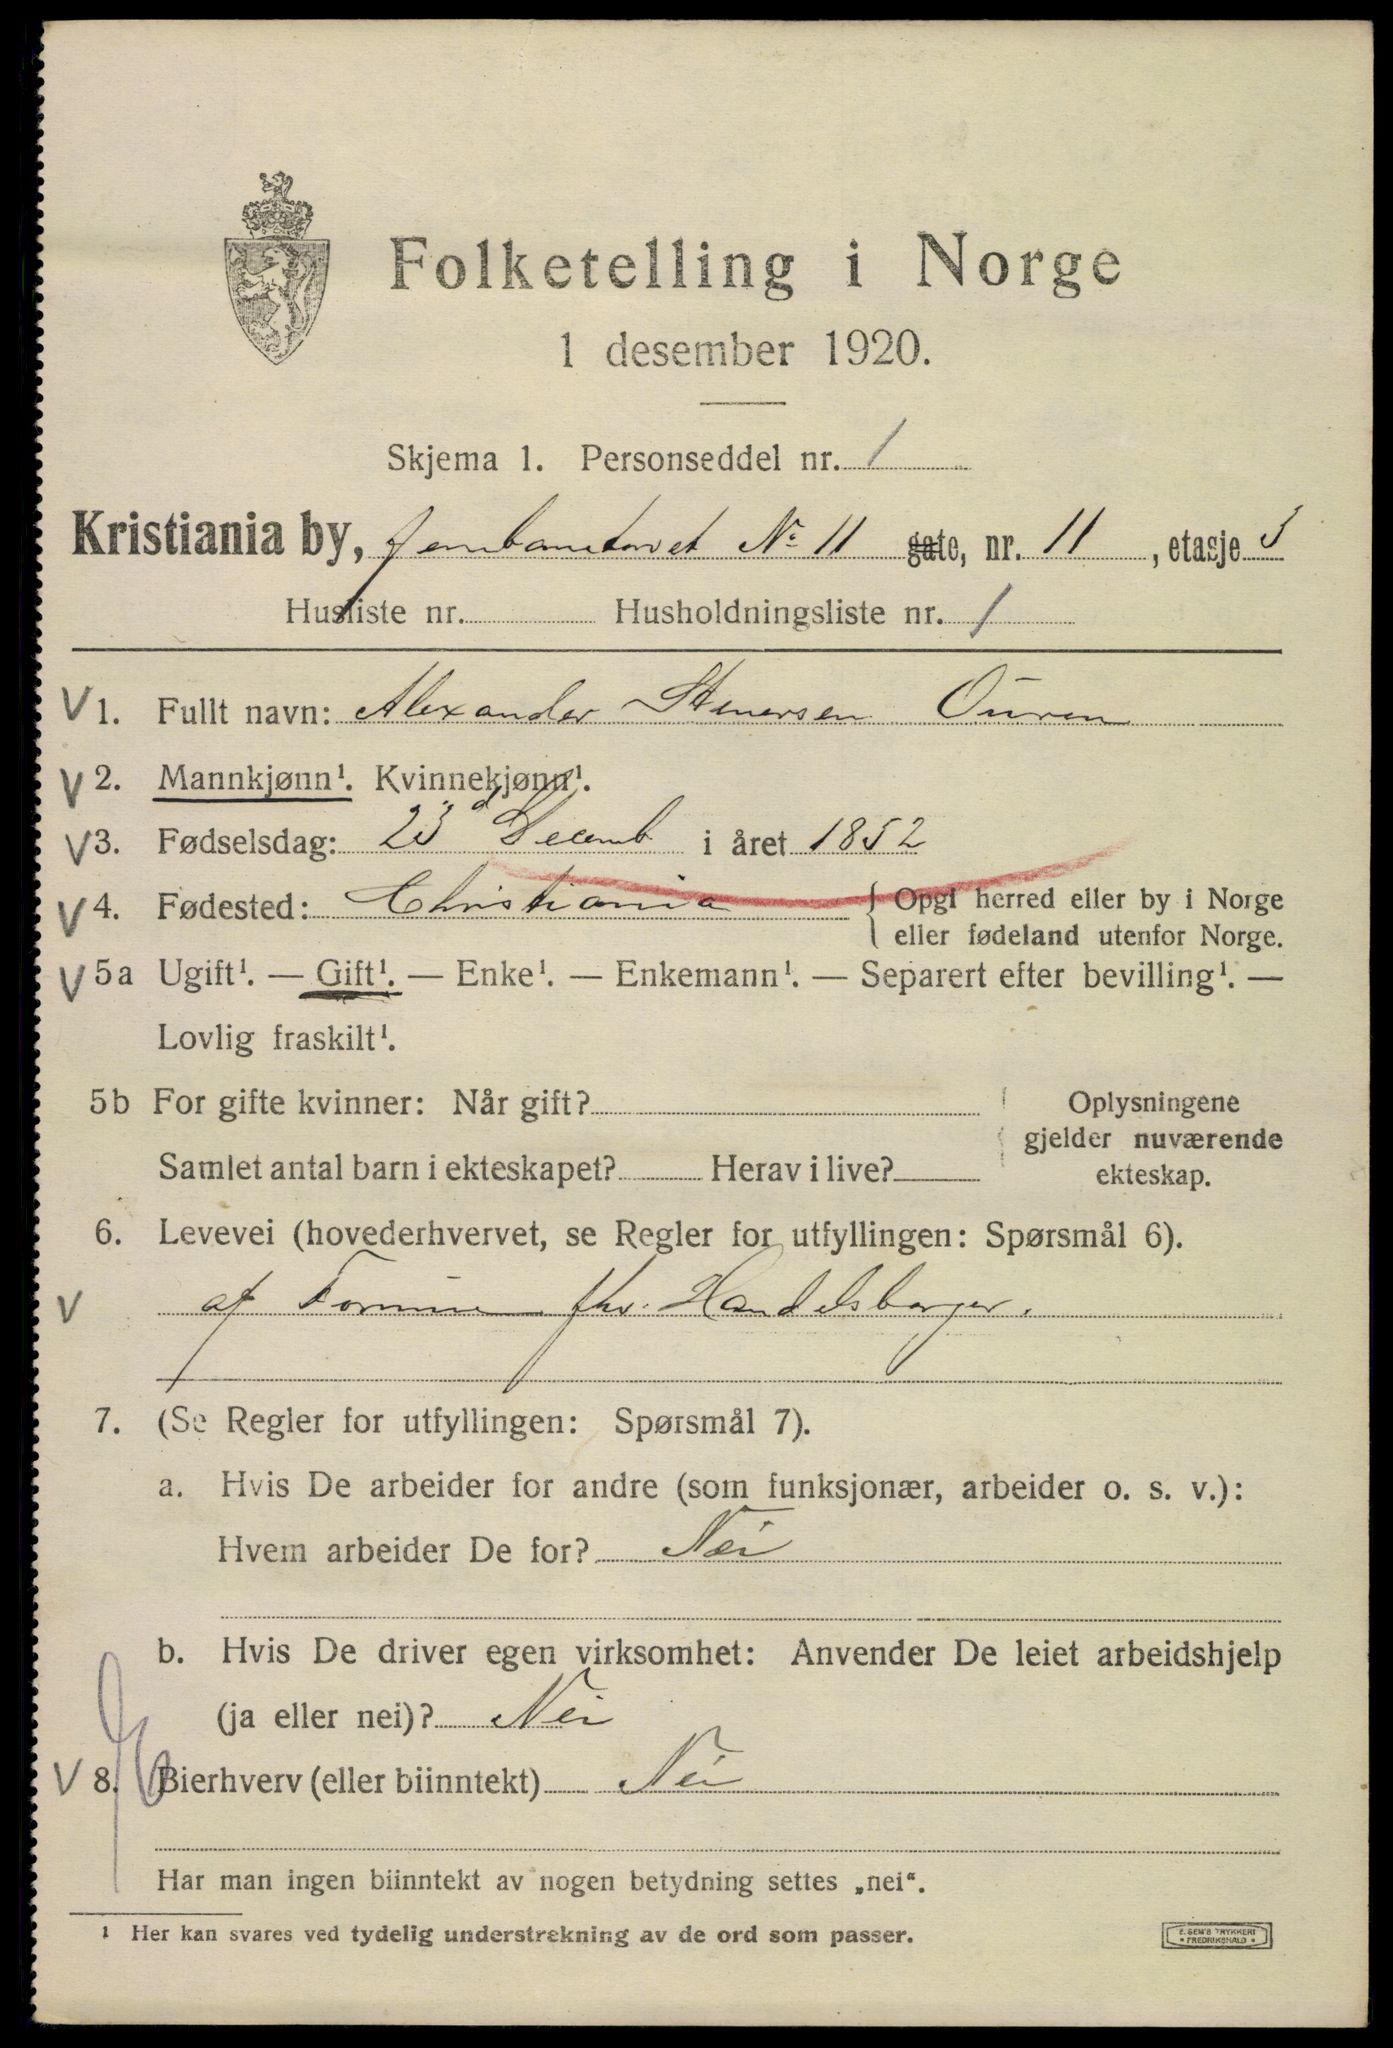 Folketelling i Norge
1 desember 1920.
Skjema 1. Personseddel nr. 1
Kristiania by, Jernbanetorvet No 11 gate, nr. 11, etasje 3
Husliste nr. Husholdningsliste nr. 1
V 1. Fullt navn: Alexander Stenersen Ouren
V 2. Mannkjønn¹. Kvinnekjønn¹.
V 3. Fødselsdag: 23d Decemb i året 1852
V 4. Fødested: Christiania { Opgi herred eller by i Norge
eller fødeland utenfor Norge.
V 5a Ugift¹. — Gift¹. — Enke¹. — Enkemann¹. — Separert efter bevilling¹. —
Lovlig fraskilt¹.
5b For gifte kvinner: Når gift? Oplysningene
gjelder nuværende
Samlet antal barn i ekteskapet? Herav i live? ekteskap.
6. Levevei (hovederhvervet, se Regler for utfyllingen: Spørsmål 6).
V af Formue fhv. Handelsborger.
7. (Se Regler for utfyllingen: Spørsmål 7).
a. Hvis De arbeider for andre (som funksjonær, arbeider o. s. v.):
Hvem arbeider De for? Nei
b. Hvis De driver egen virksomhet: Anvender De leiet arbeidshjelp
(ja eller nei)? Nei
V 8. Bierhverv (eller biinntekt) Nei
Har man ingen biinntekt av nogen betydning settes „nei“.
¹ Her kan svares ved tydelig understrekning av de ord som passer.
E. SEM'S TRYKKERI
• FREDRIKSHALD •